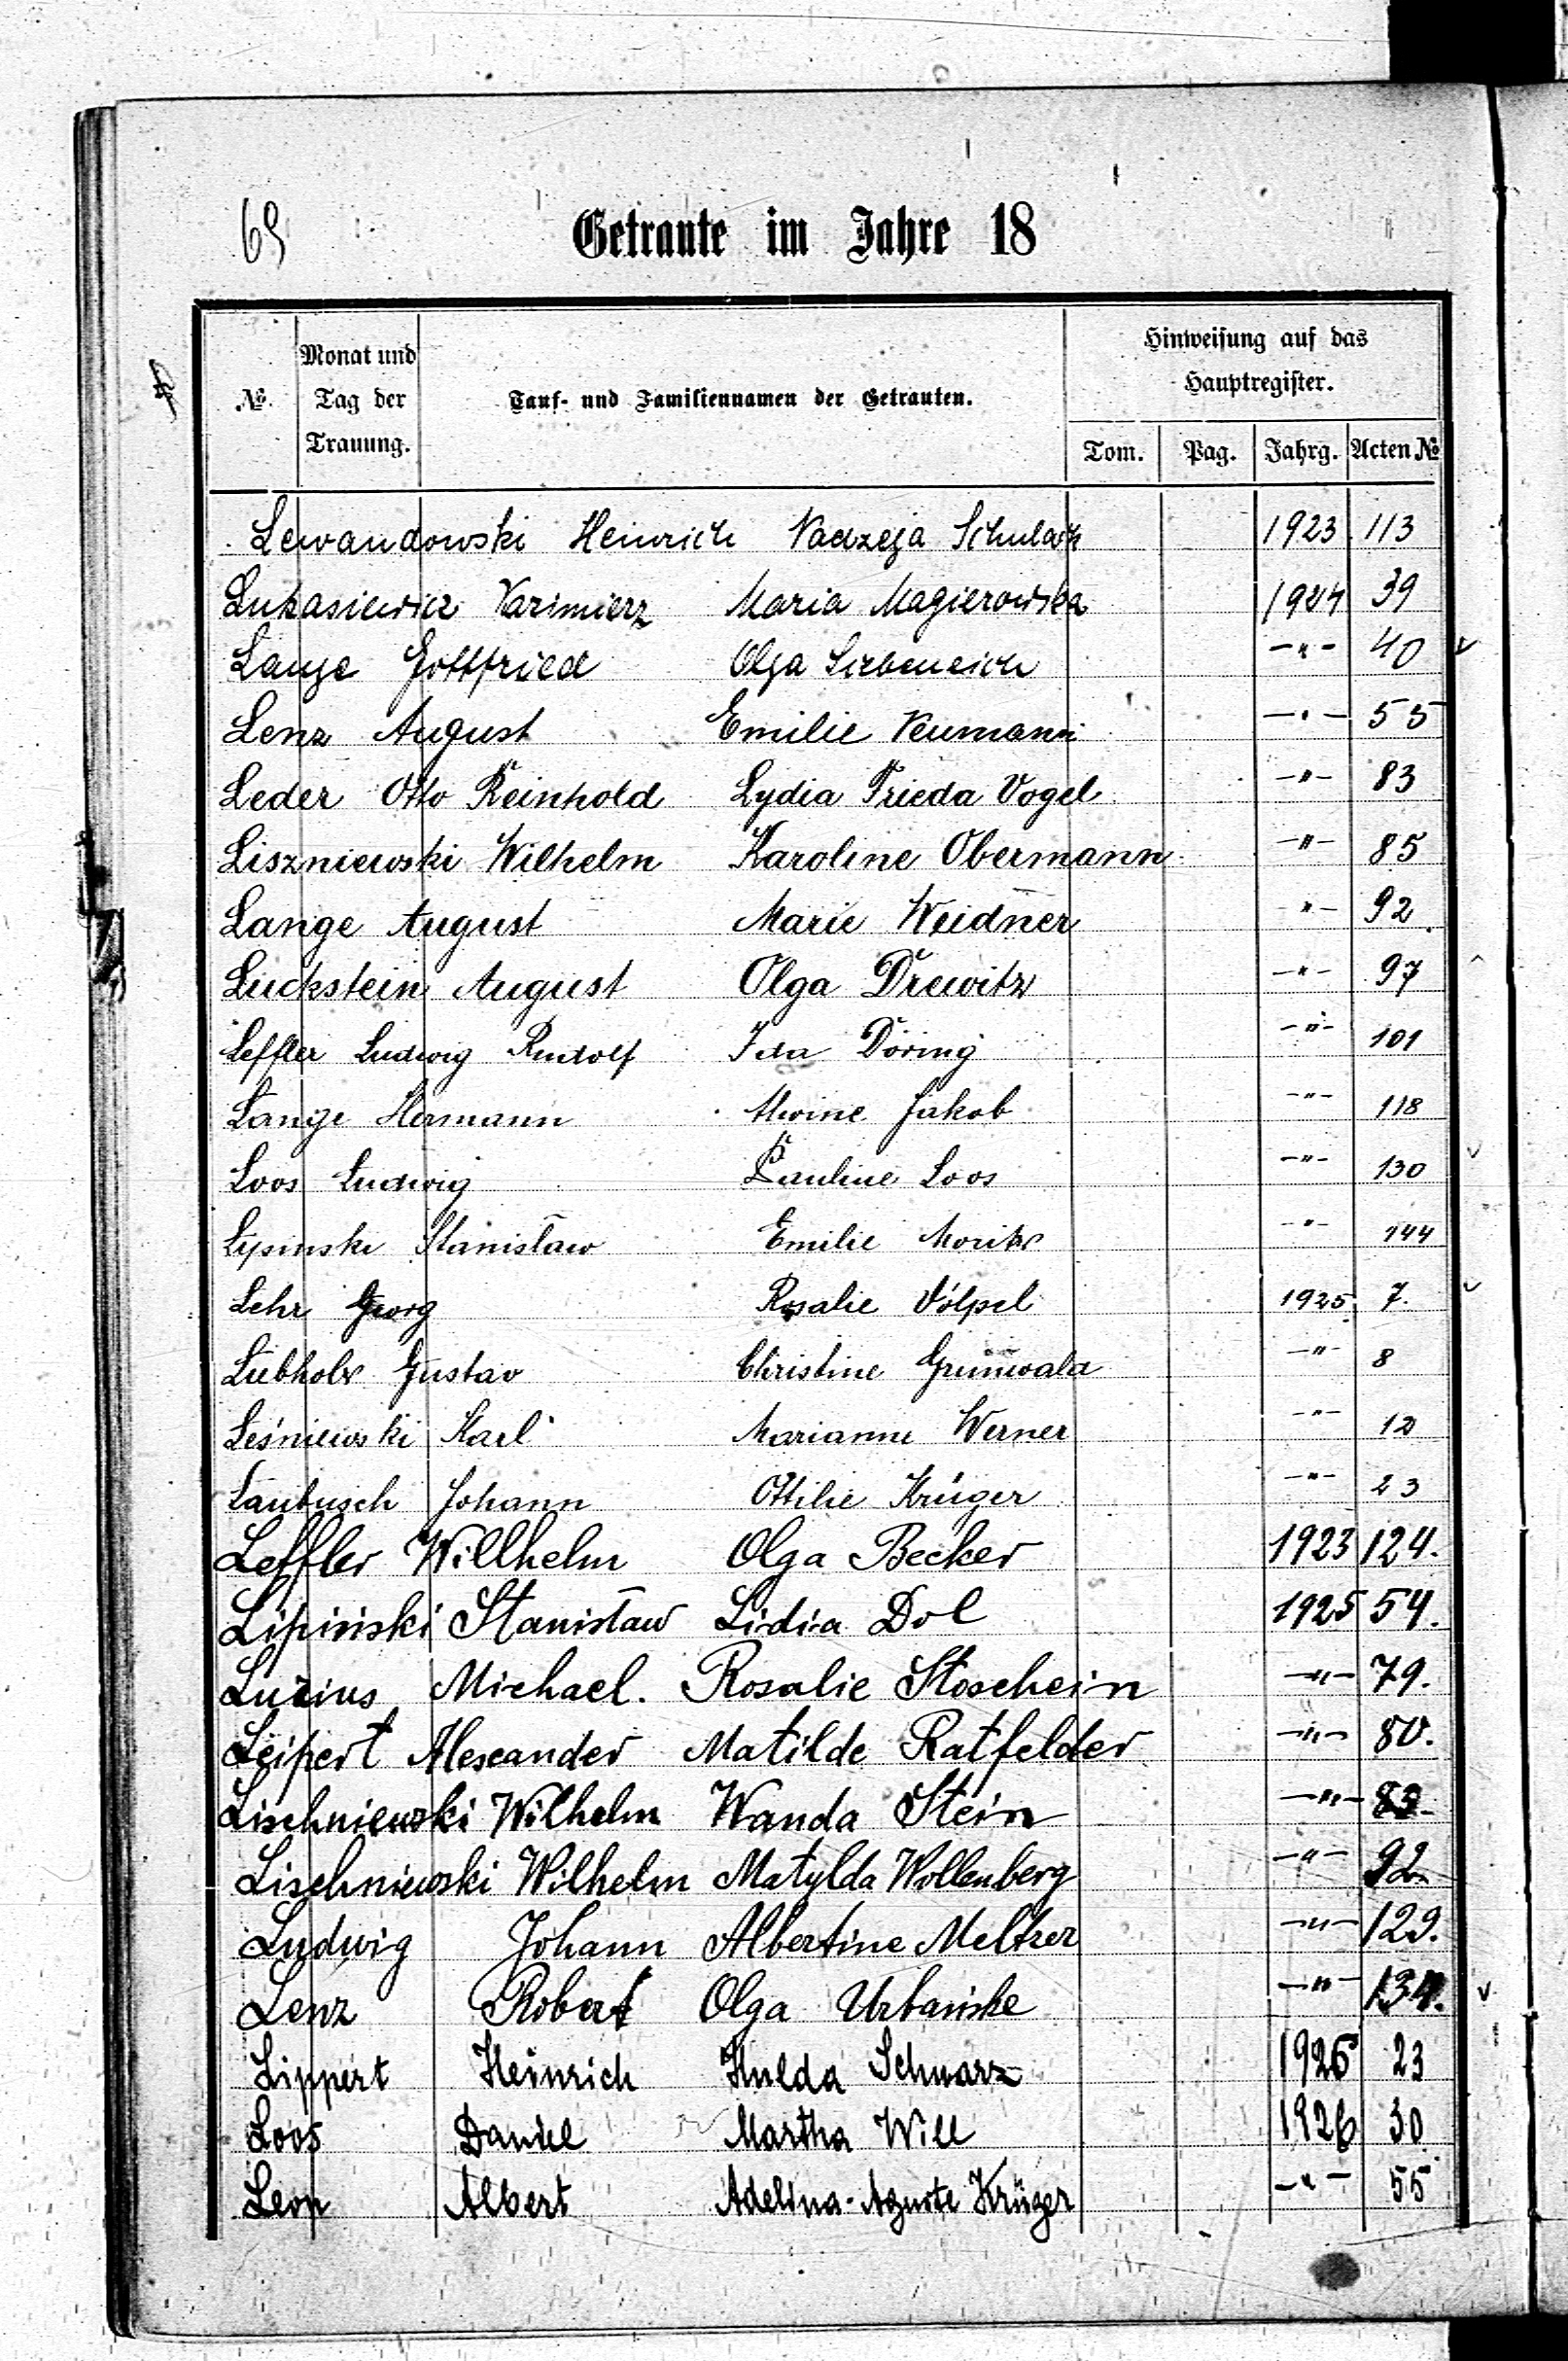 69
Getraute im Jahre 18
№
Monat und
Tag der
Trauung.
Tauf- und Familiennamen der Getrauten.
Hinweisung auf das
Hauptregister.
Tom. Pag. Jahrg. Acten №
Lewandowski Heinrich Nadzeja 1923 113
Lukasiewicz Kazimierz Maria Magierowska 1924 39
Lange Gottfried Olga Siebeneich -"- 40
Lenz August Emilie Neumann -"- 55
Leder Otto Reinhold Lydia Frieda Vogel -"- 83
Liszniewski Wilhelm Karoline Obermann -"- 85
Lange August Marie Weidner -"- 92
Luckstein August Olga Drewitz -"- 97
Leffler Ludwig Rudolf Ida Döring -"- 101
Lange Hermann Alwine Jakob -"- 118
Loos Ludwig Pauline Loos -"- 130
Lypinski Stanisław Emilie Moritz -"- 144
Lehr Georg Rosalie Völpel 1925 7.
Liebholz Gustav Christine Grunwald -"- 8
Leśniewski Karl Marianne Werner -"- 12
Laubusch Johann Ottilie Krüger -"- 23
Leffler Willhelm Olga Becker 1923 124.
Lipiński Stanisław Lidia Dol 1925 54.
Luzius Michael. Rosalie Stoschein -"- 79.
Leipert Alexander Matilde Ratfelder -"- 80.
Lischniewski Wilhelm Wanda Stein -"-
Lischniewski Wilhelm Matylda Wollenberg -"- 92
Ludwig Johann Albertine Meltzer -"- 129.
Lenz Robert Olga Urbańske -"- 134.
Lippert Heinrich Hulda Schwarz 1926 23
Loos Daniel Martha Will 1926 30
Leon Albert Adelina-Aguste Krüger -"- 55